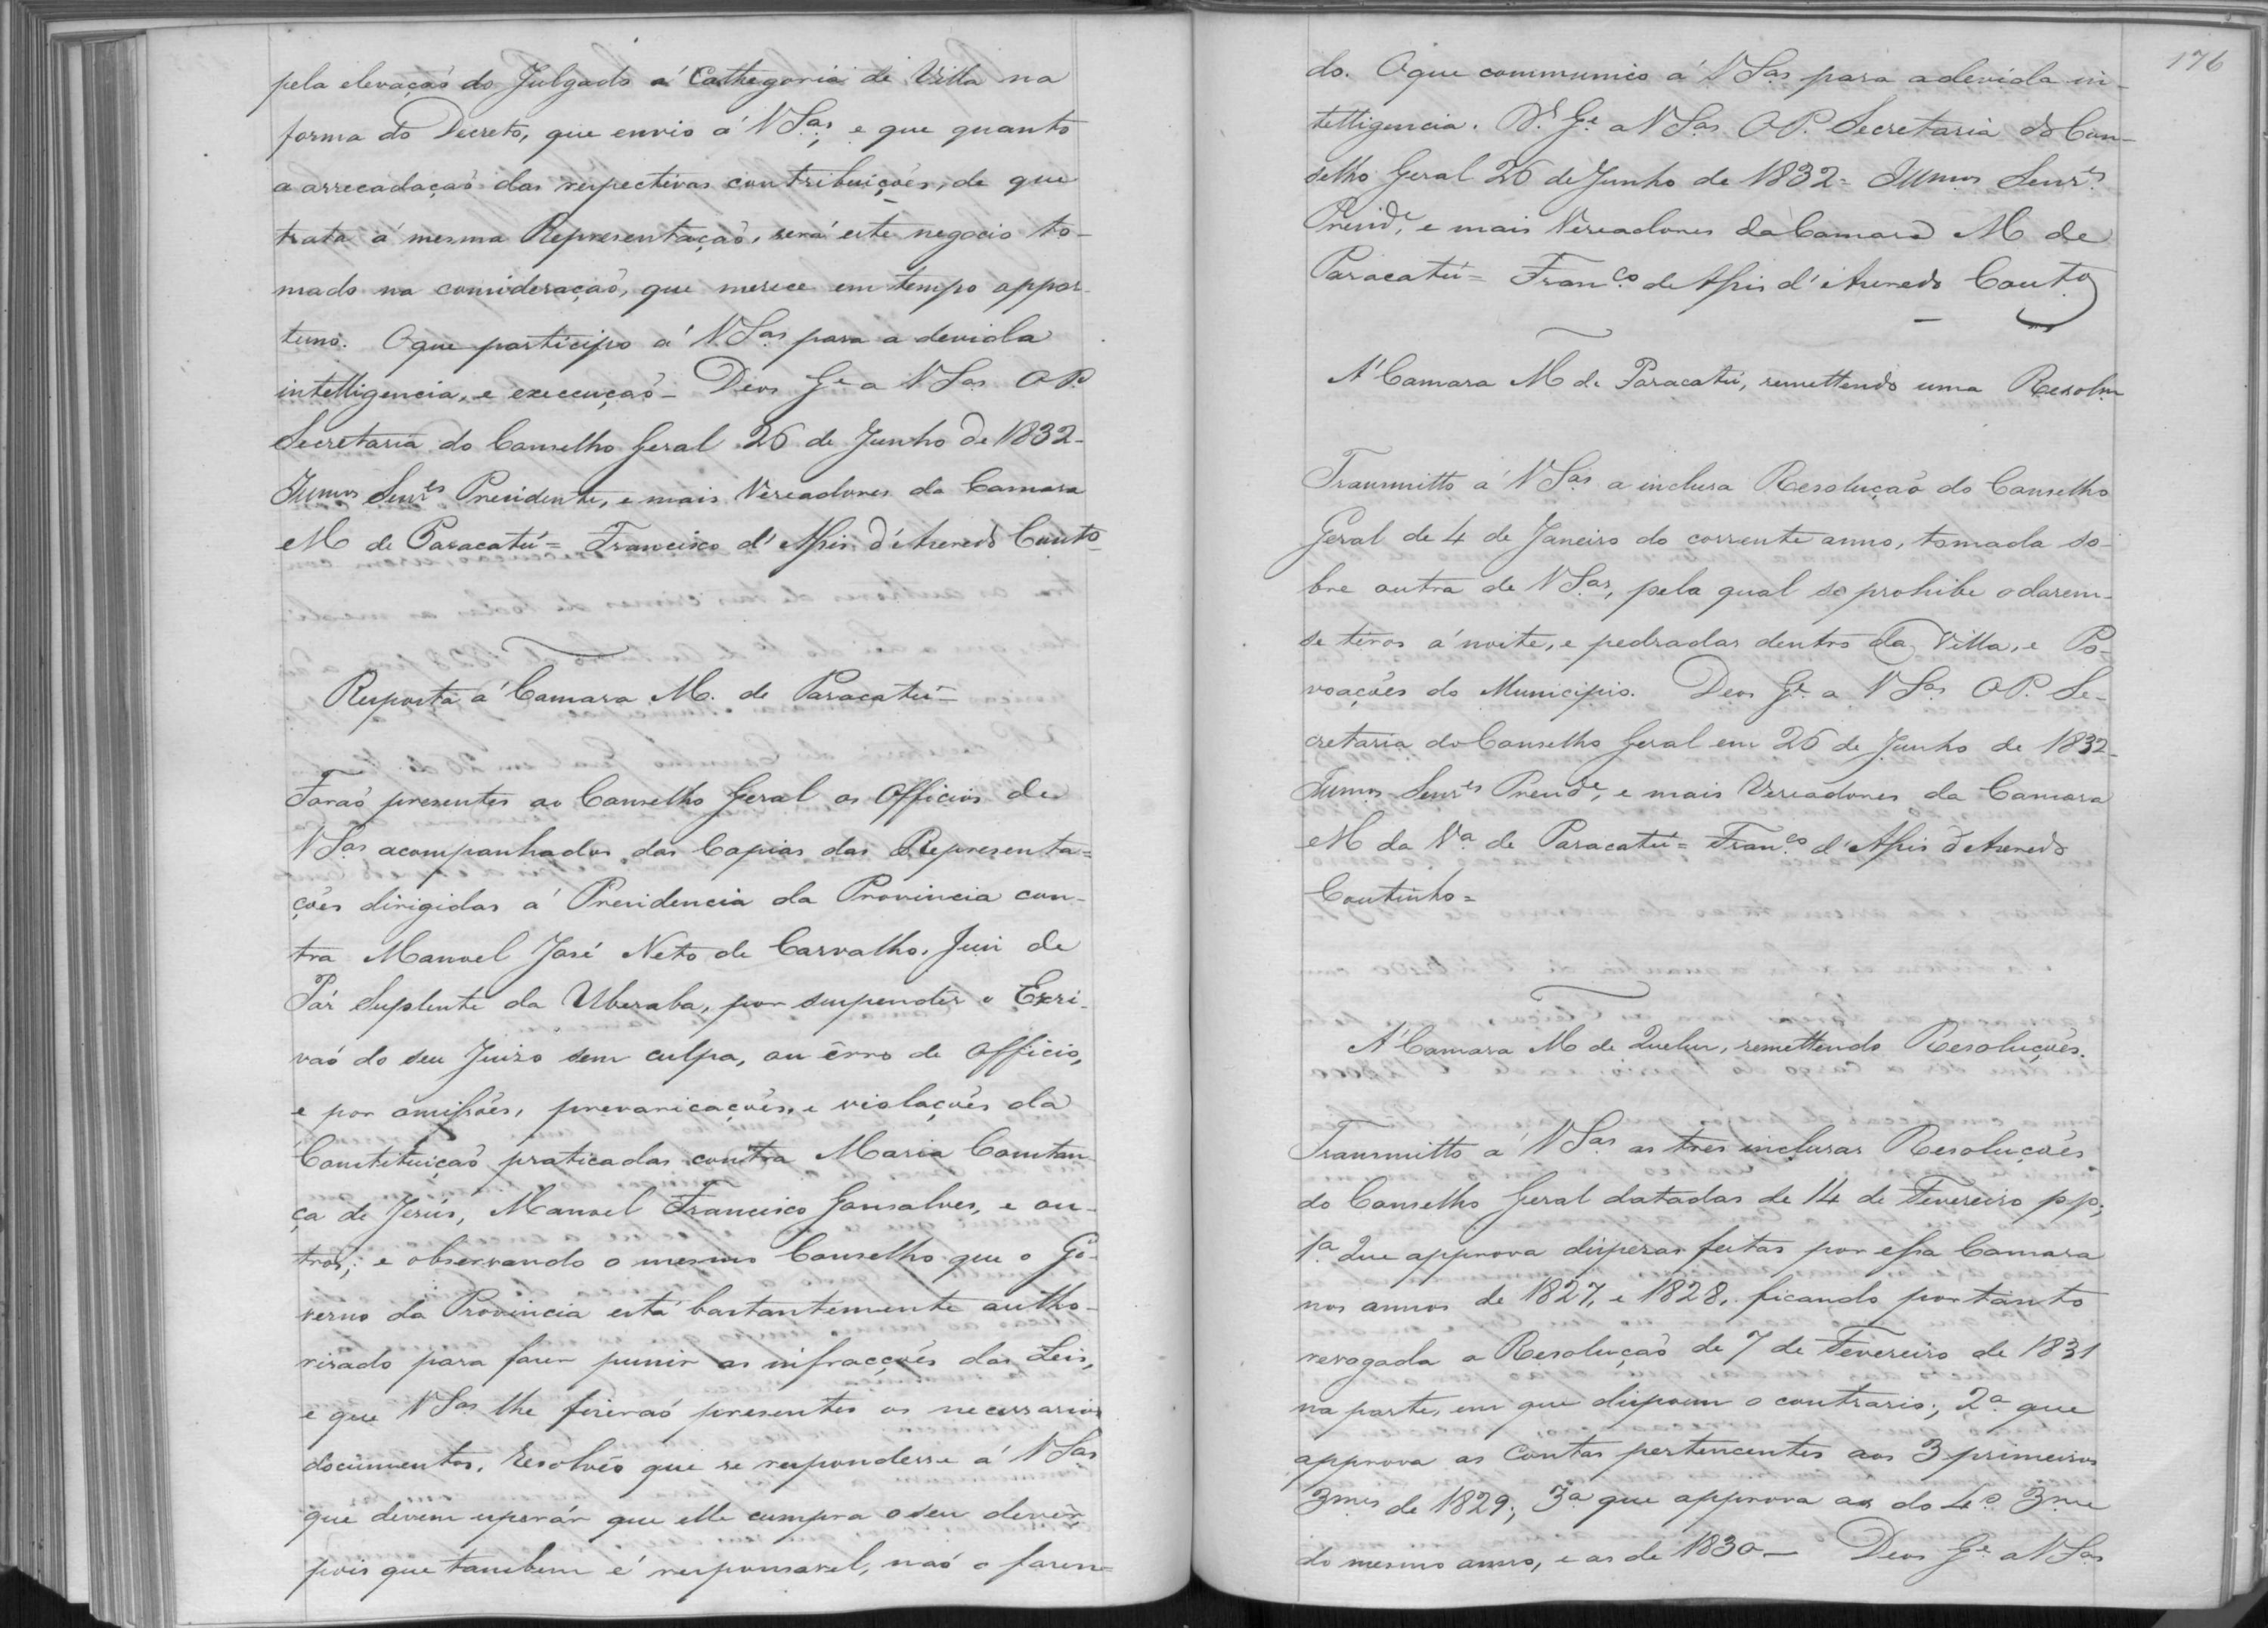 pela elevaçaõ do Julgado á Cathegoria de Villa na
forma do Decreto, que envio á VSas, e que quanto
a arrecadaçaõ das respectivas contribuiçoẽs, de que
trata á mesma Representaçaõ, será este negocio to-
mado na consideraçaõ, que merece em tempo oppor-
tuno. Oque participo á VSas para a devida
intelligencia, e execuçaõ - Deos Ge a VSas OP.
Secretaria do Conselho Geral 26 de Junho de 1832 -
Illmos Senres Presidente, e mais Vereadores da Camara
M de Paracatú = Francisco d'Assis d'Azeredo Couto
Resposta á Camara M. de Paracatú =
Foraõ presentes ao Conselho Geral os Officios de
VSas acompanhados das Copias das Representa=
çoẽs dirigidas á Presidencia da Provincia con-
tra Manoel José Neto de Carvalho, Juiz de
Páz Suplente da Uberaba, por suspender o Escri-
vaõ do seu Juizo sem culpa, ou êrro de Officio,
e por omissoẽs, prevaricaçoẽs, e violaçoẽs da
Constituiçaõ praticadas contra Maria Constan-
ça de Jesús, Manoel Francisco Gonsalves, e ou-
tros; e observando o mesmo Conselho que o Go-
verno da Provincia está bastantemente autho-
risado para fazer punir as infracçoẽs das Leis,
e que VSas lhe fizeraõ presentes os necessarios
documentos, resolvêo que se respondesse á VSas
que devem esperár que elle cumpra o seu devêr,
pois que tambem é responsavel, naõ o fazen=
176
do. Oque communico á VSas para a devida in-
telligencia. Ds Ge a VSas OP. Secretaria do Con-
selho Geral 26 de Junho de 1832 = Illmos Senres
Presidte, e mais Vereadores da Camara M de
Paracatú = Franco de Assis d'Azeredo Couto
Á Camara M de Paracatú, remettendo uma Resolm
Transmitto á VSas a inclusa Resoluçaõ do Conselho
Geral de 4 de Janeiro do corrente anno, tomada so-
bre outra de VSas, pela qual se prohibe o darem-
se tiros á noite, e pedradas dentro da Villa, e Po-
voaçoẽs do Municipio. Deos Ge a VSas OP. Se-
cretaria do Conselho Geral em 26 de Junho de 1832 -
Illmos Senres Preside, e mais Vereadores da Camara
M da Va de Paracatú = Franco d'Assis d'Azeredo
Coutinho =
Á Camara M de Queluz, remettendo Resoluçoẽs.
Transmitto á VSas as tres inclusas Resoluçoẽs
do Conselho Geral datadas de 14 de Fevereiro pp;
1a Que approva dispezas feitas por essa Camara
nos annos de 1827, e 1828, ficando portanto
revogada a Resoluçaõ de 7 de Fevereiro de 1831
na parte, em que dispoem o contrario; 2a que
approva as Contas pertencentes aos 3 primeiros
3mes de 1829; 3a que approva as do 4o 3me
do mesmo anno, e as de 1830 - Deos Ge a VSas